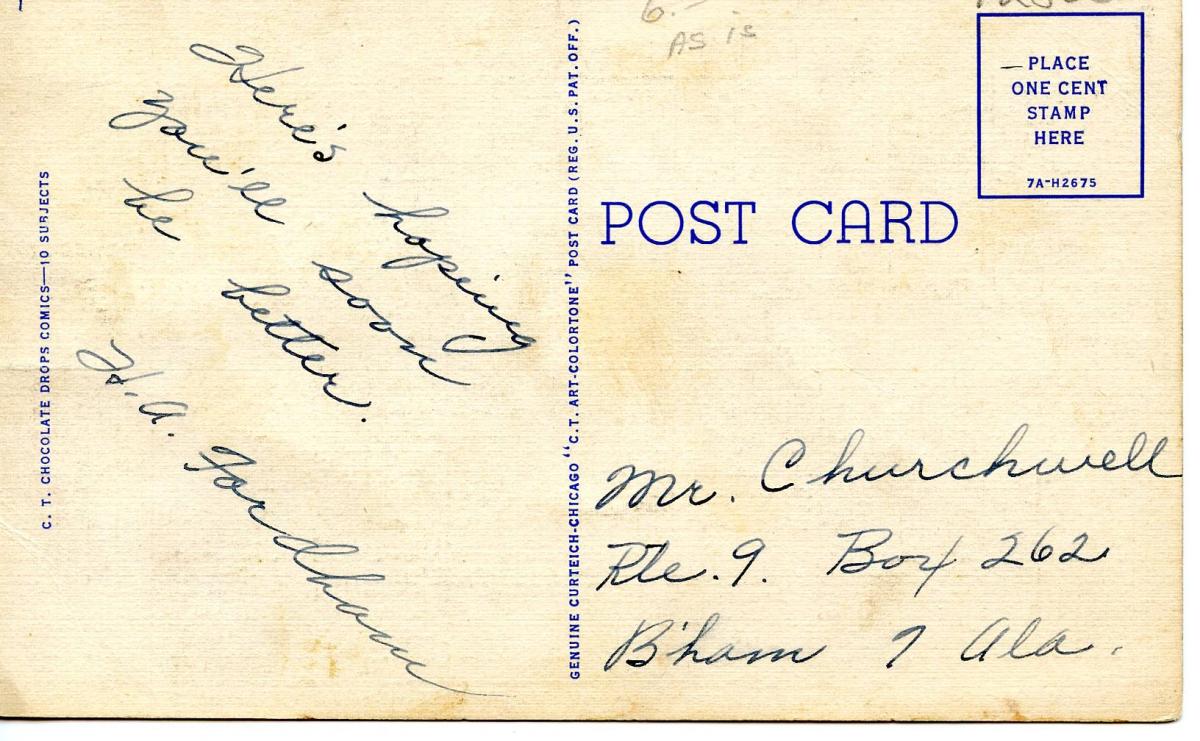 C. T. CHOCOLATE DROPS COMICS—10 SUBJECTS
Here's hoping
you'll soon
be better.
H. A. Fordham
GENUINE CURTEICH-CHICAGO "C.T. ART-COLORTONE" POST CARD (REG. U.S. PAT. OFF.)
6.—
AS is
PLACE
ONE CENT
STAMP
HERE
7A-H2675
POST CARD
Mr. Churchwell
Rte. 9. Box 262
B'ham 7 Ala.